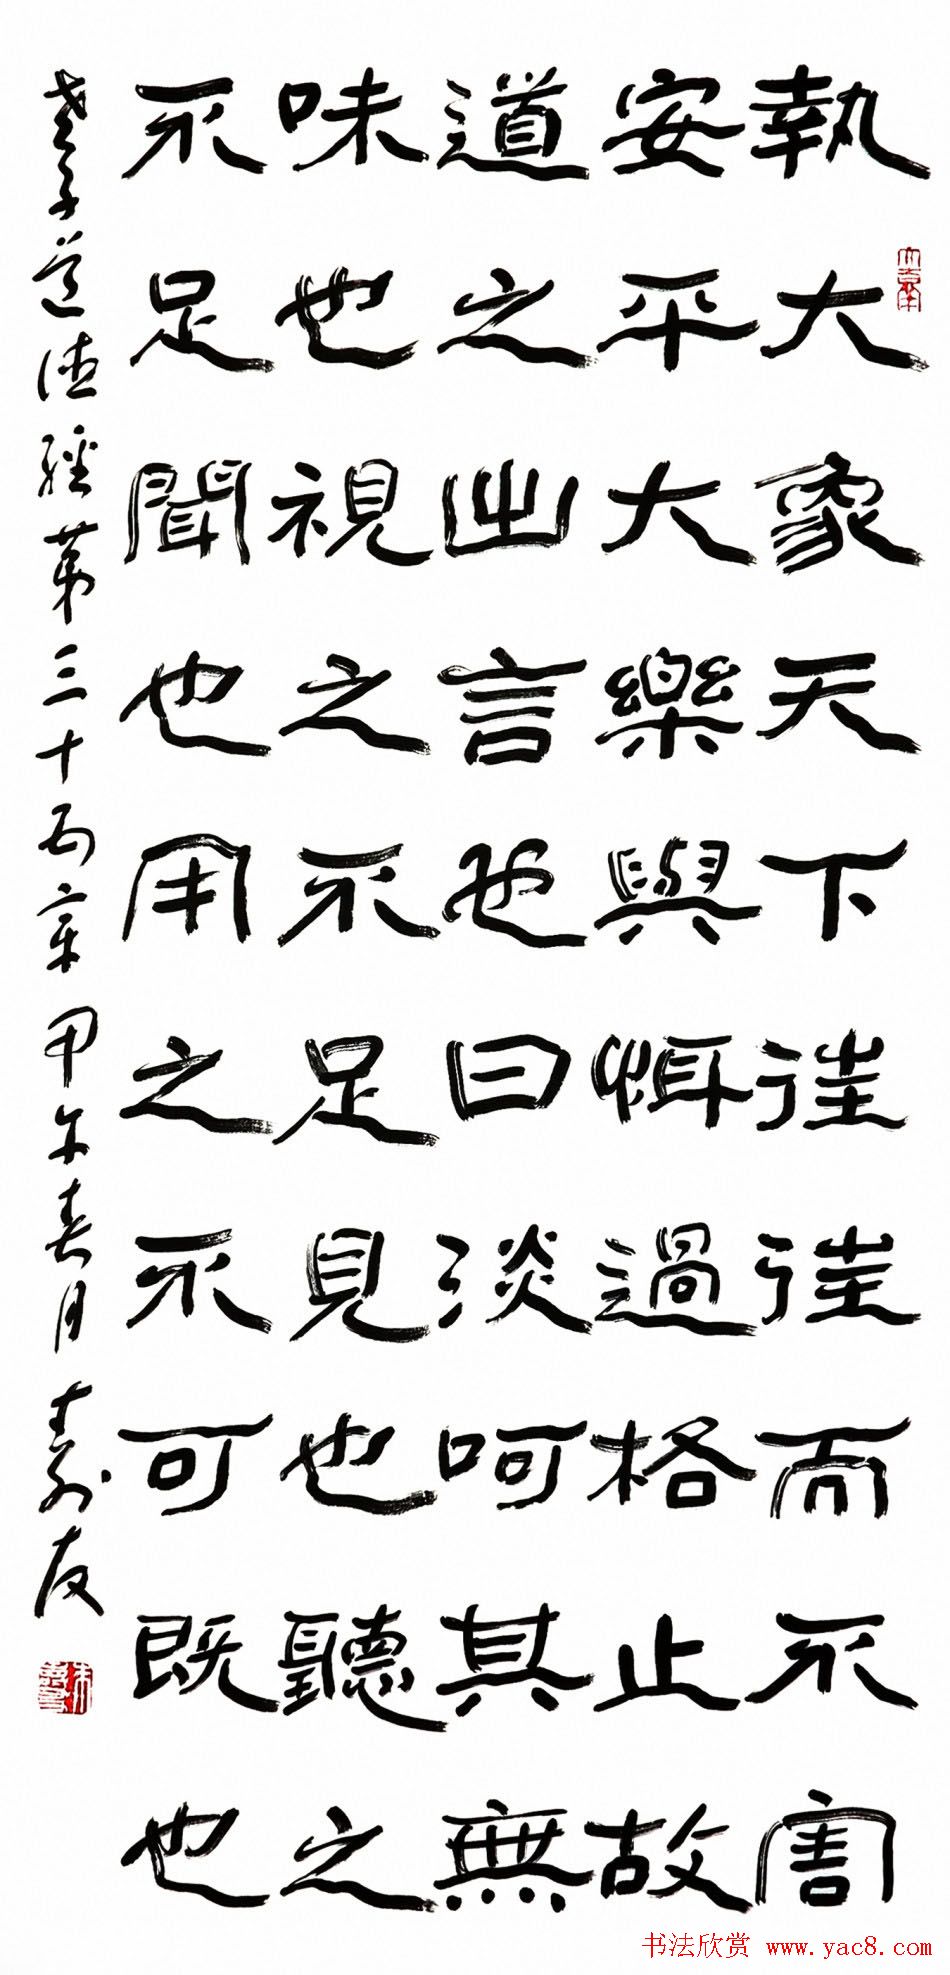 執大象天下往往而不害
安平大樂與餌過格止故
道之出言也曰淡呵其無
味也視之不足見也聽之
不足聞也用之不可既也
老子道德經第三十五章甲午春月壽友
书法欣赏 www.yac8.com